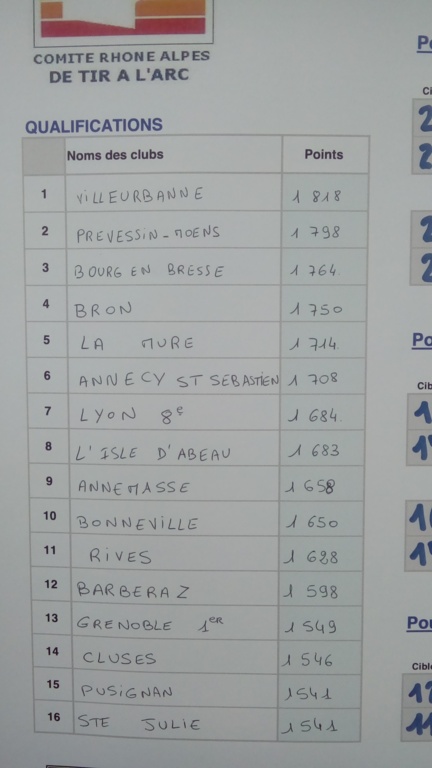 COMITE RHONE ALPES
DE TIR A L'ARC
QUALIFICATIONS
Noms des clubs Points
1 VILLEURBANNE 1 818
2 PREVESSIN-MOENS 1.798
3 BOURG EN BRESSE 1 764.
4 BRON 1 750
5 LA MURE 1 714.
6 ANNECY ST SEBASTIEN 1 708
7 LYON 8e 1 684.
8 L'ISLE D'ABEAU 1 683
9 ANNEMASSE 1 658
10 BONNEVILLE 1 650
11 RIVES 1 628
12 BARBERAZ 1 598
13 GRENOBLE 1ER 1 549
14 CLUSES 1 546
15 PUSIGNAN 1541
16 STE JULIE 1 541